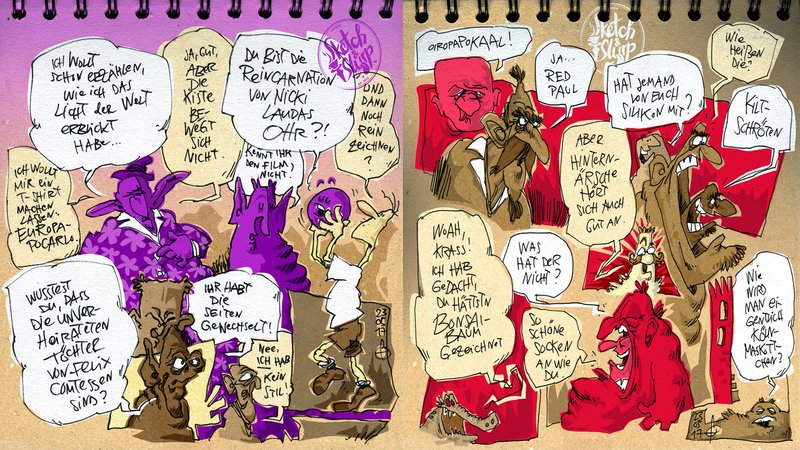 ICH WOLLT
SCHON ERZÄHLEN,
WIE ICH DAS
LICHT DER WELT
ERBLICKT
HABE...
JA, GUT,
ABER
DIE
KISTE
BE-
WEGT
SICH
NICHT.
DU BIST DIE
REINCARNATION
VON NICKI
LAUDAS
OHR?!
Sketch
Slurp
UND
DANN
NOCH
REIN
ZEICHNEN?
KENNT IHR
DEN FILM
NICHT!
ICH WOLLT
MIR EIN
T-SHIRT
MACHEN
LASSEN:
EUROPA-
POCARL.
WUSSTEST
DU, DASS
DIE UNVER-
HEIRATETEN
TÖCHTER
VON FELIX
COMTESSEN
SIND?
IHR HABT
DIE
SEITEN
GEWECHSELT!
NEE,
ICH HAB
KEIN
STIL!
23
05
17
OIROPAPOKAAL!
Sketch
Slurp
JA...
RED
PAUL
HAT JEMAND
VON EUCH
SILIKON MIT?
WIE
HEIßEN
DIE?
KILT-
SCHRÖTEN
ABER
HINTERN-
ÄRSCHE
HÖRT
SICH AUCH
GUT AN.
WOAH,
KRASS!
ICH HAB
GEDACHT,
DU HÄTTST'N
BONSAI-
BAUM
GEZEICHNET
WAS
HAT DER
NICHT?
SO
SCHÖNE
SOCKEN
AN WIE
DU
WIE
WIRD
MAN EI-
GENTLICH
17